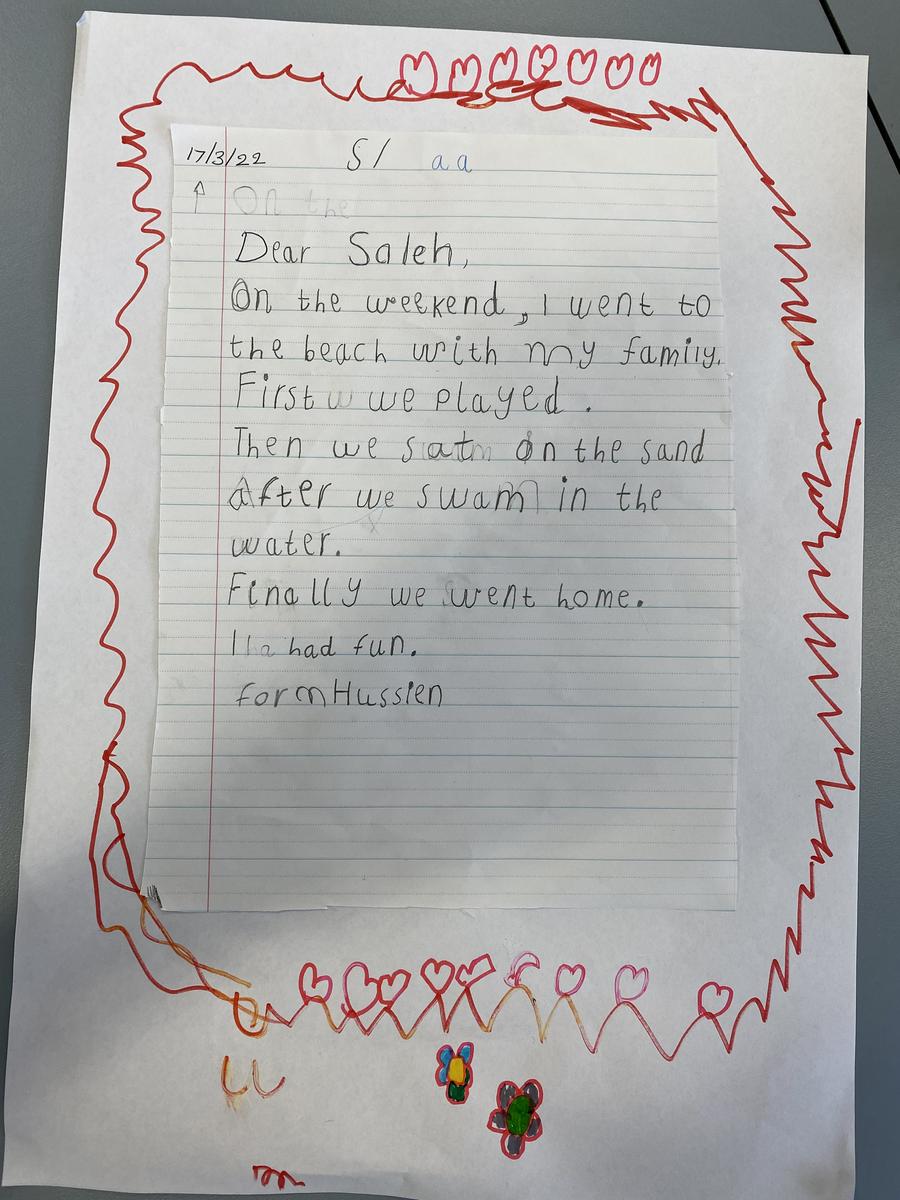 17/3/22 S/ aa
On the
Dear Saleh,
On the weekend, I went to
the beach with my family.
First w we played.
Then we satm on the sand
After we swam in the
water.
Finally we went home.
I ha had fun.
form Hussien